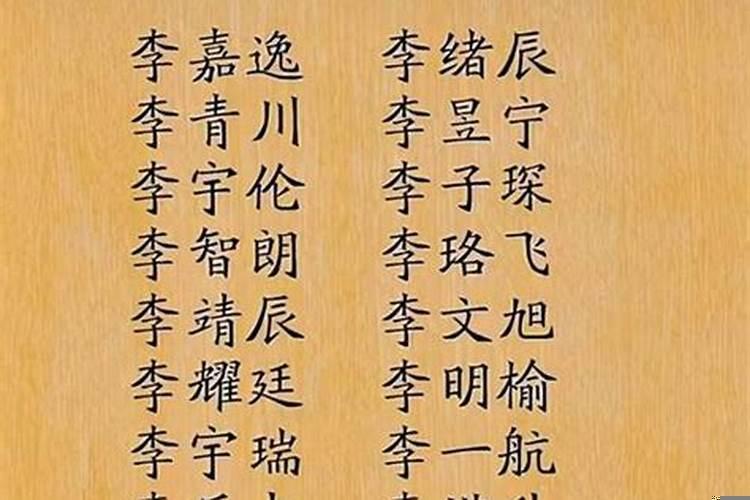 李嘉逸 李绪辰
李青川 李昱宁
李宇伦 李子琛
李智朗 李珞飞
李靖辰 李文旭
李耀廷 李明榆
李宇瑞 李一航